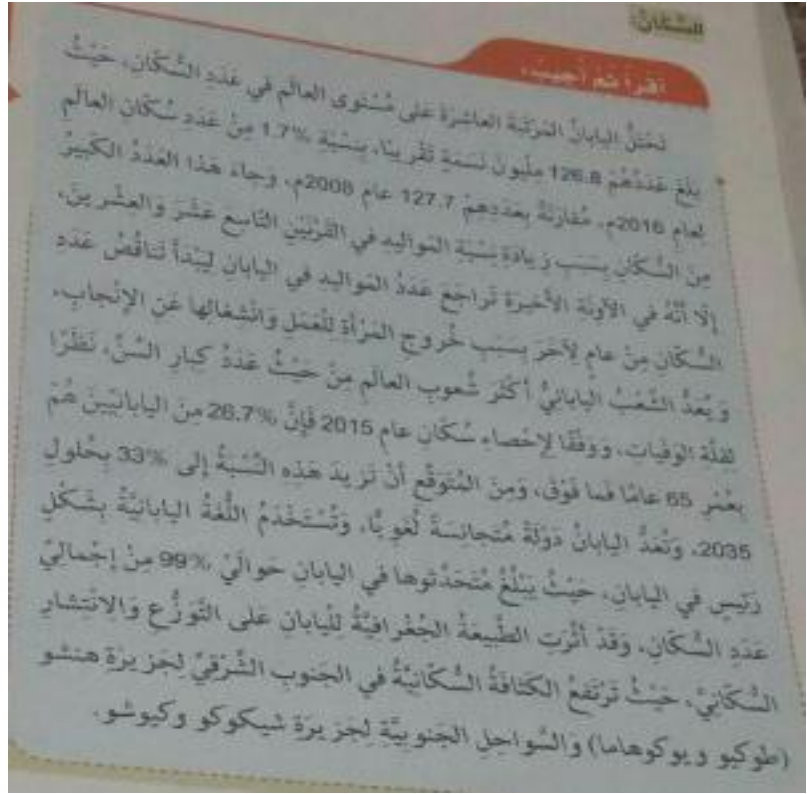 السُّكّانُ:
أقرأُ ثمَّ أُجيبُ:
تَحْتَلُّ اليابانُ المَرْتَبَةَ العاشِرَةَ على مُسْتَوى العالَمِ في عَدَدِ السُّكّانِ، حَيْثُ
بَلَغَ عَدَدُهُمْ 126.8 مِلْيونَ نَسَمَةٍ تَقْريبًا، بِنِسْبَةِ %1.7 مِنْ عَدَدِ سُكّانِ العالَمِ
لِعامِ 2016م، مُقارَنَةً بِعَدَدِهِمْ 127.7 عام 2008م، وَجاءَ هَذا العَدَدُ الكَبيرُ
مِنَ السُّكّانِ بِسَبَبِ زِيادَةِ نِسْبَةِ المَواليدِ في القَرْنَيْنِ التّاسِعَ عَشَرَ وَالعِشْرينَ،
إلّا أنَّهُ في الآوِنَةِ الأَخيرَةِ تَراجَعَ عَدَدُ المَواليدِ في اليابانِ لِيَبْدَأَ تَناقُصُ عَدَدِ
السُّكّانِ مِنْ عامٍ لِآخَرَ بِسَبَبِ خُروجِ المَرْأَةِ لِلْعَمَلِ وَانْشِغالِها عَنِ الإنْجابِ،
وَيُعَدُّ الشَّعْبُ اليابانِيُّ أَكْثَرَ شُعوبِ العالَمِ مِنْ حَيْثُ عَدَدُ كِبارِ السِّنِّ، نَظَرًا
لِقِلَّةِ الوَفَياتِ، وَوَفْقًا لِإحْصاءِ سُكّانِ عام 2015 فَإنَّ %26.7 مِنَ اليابانِيّينَ هُمْ
بِعُمْرِ 65 عامًا فَما فَوْقَ، وَمِنَ المُتَوَقَّعِ أَنْ تَزيدَ هَذِهِ النِّسْبَةُ إلى %33 بِحُلولِ
2035، وَتُعَدُّ اليابانُ دَوْلَةً مُتَجانِسَةً لُغَوِيًّا، وَتُسْتَخْدَمُ اللُّغَةُ اليابانِيَّةُ بِشَكْلٍ
رَئيسٍ في اليابانِ، حَيْثُ يَبْلُغُ مُتَحَدِّثوها في اليابانِ حَوالَيْ %99 مِنْ إجْمالِيِّ
عَدَدِ السُّكّانِ، وَقَدْ أَثَّرَتِ الطَّبيعَةُ الجُغْرافِيَّةُ لِلْيابانِ على التَّوَزُّعِ وَالانْتِشارِ
السُّكّانِيِّ، حَيْثُ تَرْتَفِعُ الكَثافَةُ السُّكّانِيَّةُ في الجَنوبِ الشَّرْقِيِّ لِجَزيرَةِ هنشو
(طوكيو ويوكوهاما) وَالسَّواحِلِ الجَنوبِيَّةِ لِجَزيرَةِ شيكوكو وكيوشو.